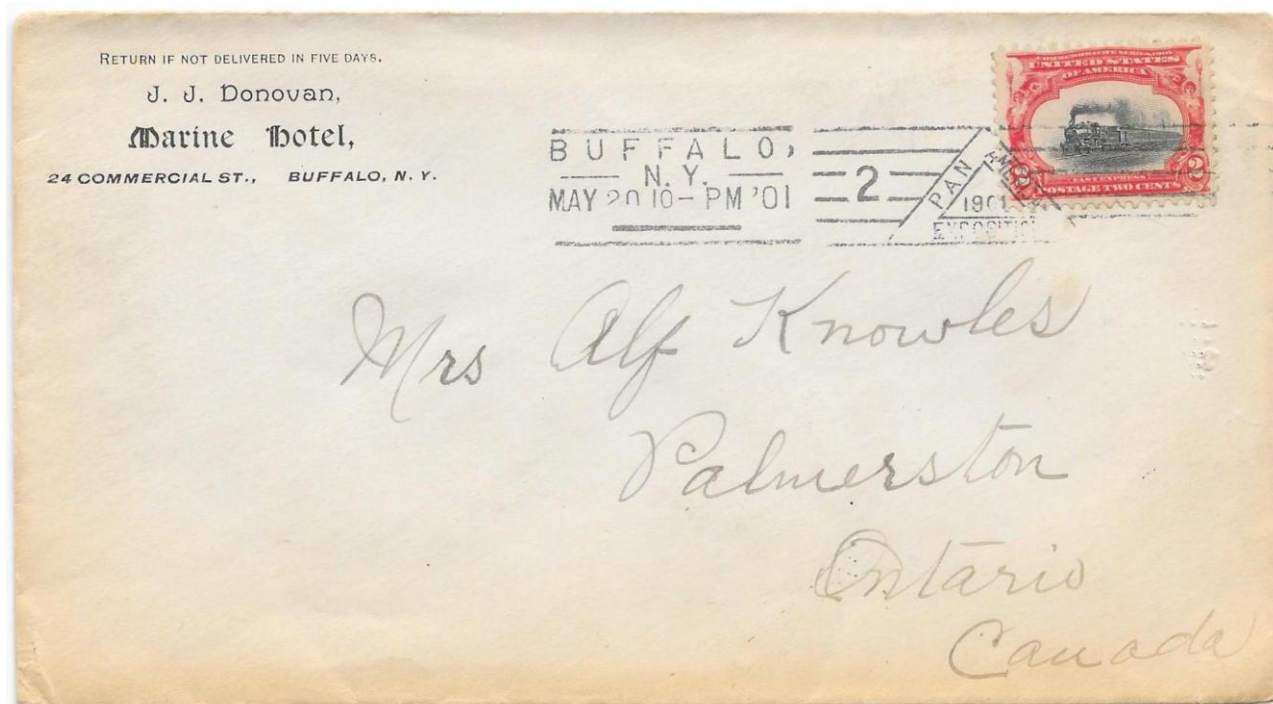 RETURN IF NOT DELIVERED IN FIVE DAYS.
J. J. Donovan,
Marine Hotel,
24 COMMERCIAL ST., BUFFALO, N. Y.
BUFFALO,
N. Y.
MAY 20 10- PM '01
2
PAN
1901
EXPOSITION
UNITED STATES
OF AMERICA
FAST EXPRESS
2 2
POSTAGE TWO CENTS
Mrs Alf Knowles
Palmerston
Ontario
Canada